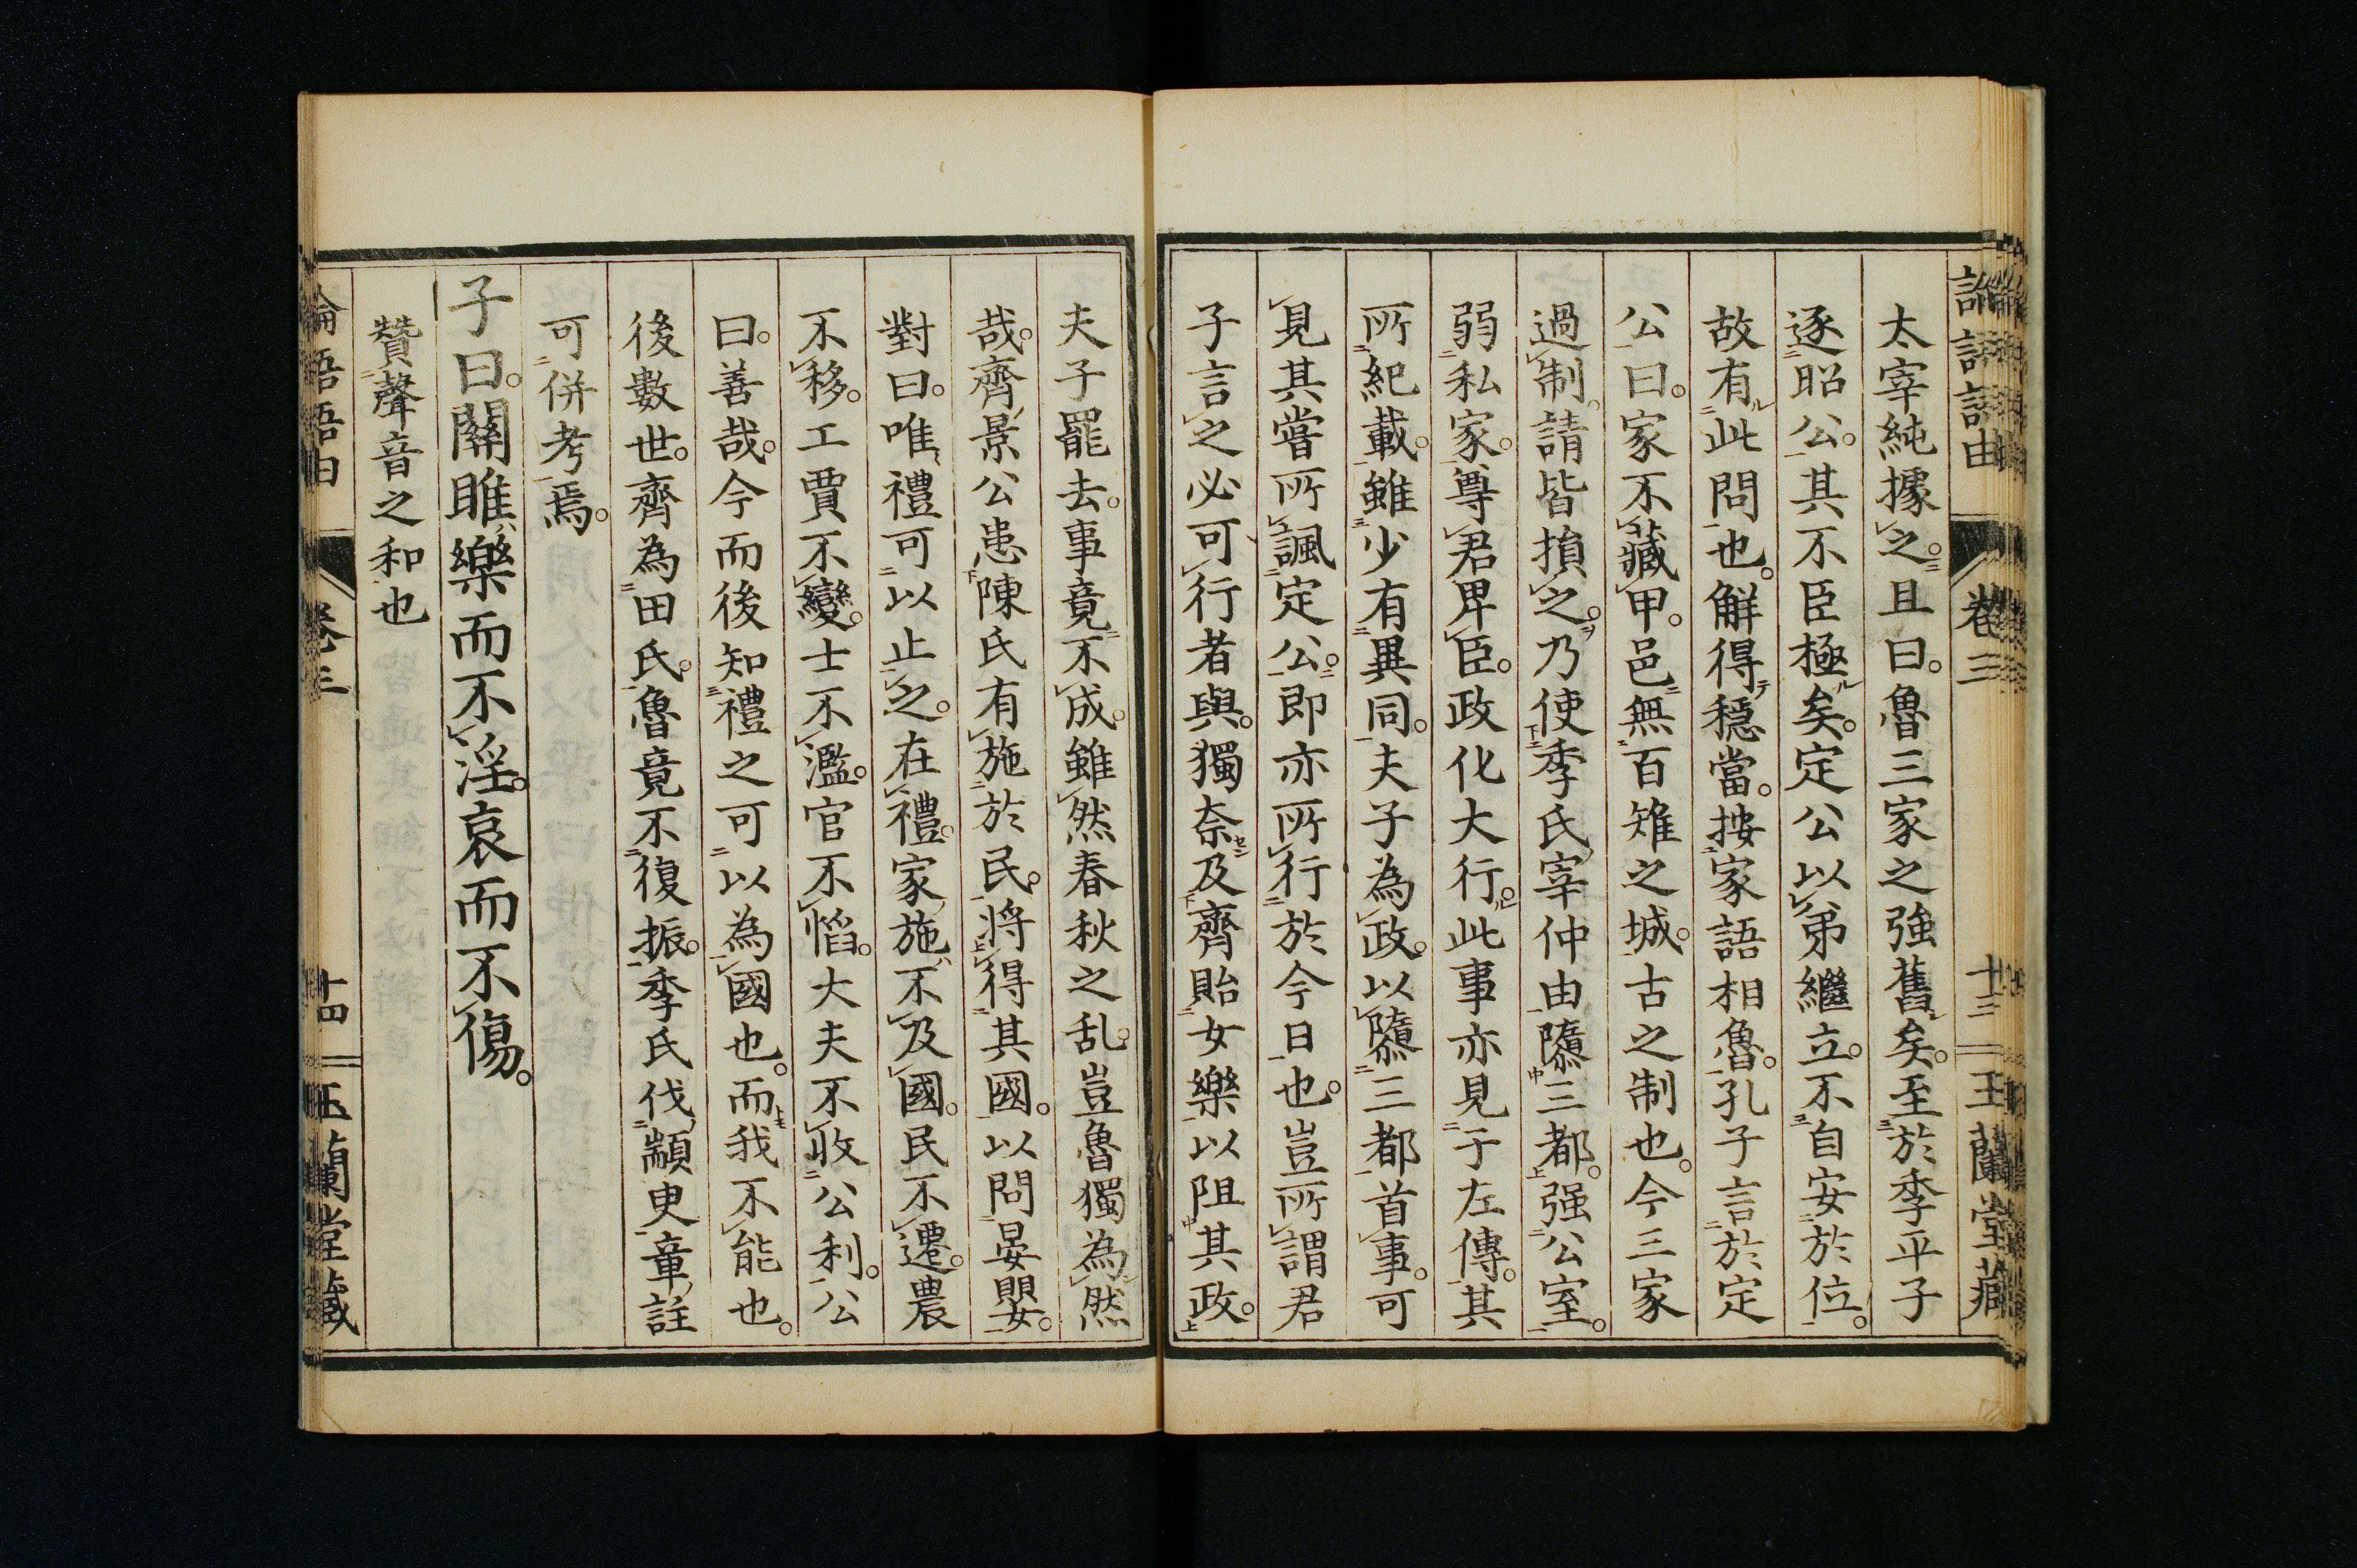 論語語由 卷三 十三 玉蘭堂藏
太宰純據之。且曰。魯三家之強舊矣。至於季平子
逐昭公。其不臣極矣。定公以弟繼立。不自安於位。
故有此問也。解得穩當。按家語相魯。孔子言於定
公曰。家不藏甲。邑無百雉之城。古之制也。今三家
過制。請皆損之。乃使季氏宰仲由隳三都。强公室。
弱私家。尊君卑臣。政化大行。此事亦見于左傳。其
所紀載。雖少有異同。夫子為政。以隳三都首事。可
見其嘗所諷定公。即亦所行於今日也。豈所謂君
子言之必可行者與。獨奈及齊貽女樂以阻其政。
夫子罷去。事竟不成。雖然春秋之乱。豈魯獨為然
哉。齊景公患陳氏有施於民。將得其國。以問晏嬰。
對曰。唯禮可以止之。在禮。家施不及國。民不遷。農
不移。工賈不變。士不濫。官不慆。大夫不收公利。公
曰。善哉。今而後知禮之可以為國也。而我不能也。
後數世。齊為田氏。魯竟不復振。季氏伐顓臾章註
可併考焉。
子曰。關雎樂而不淫。哀而不傷。
贊聲音之和也
論語語由 卷三 十四 玉蘭堂藏